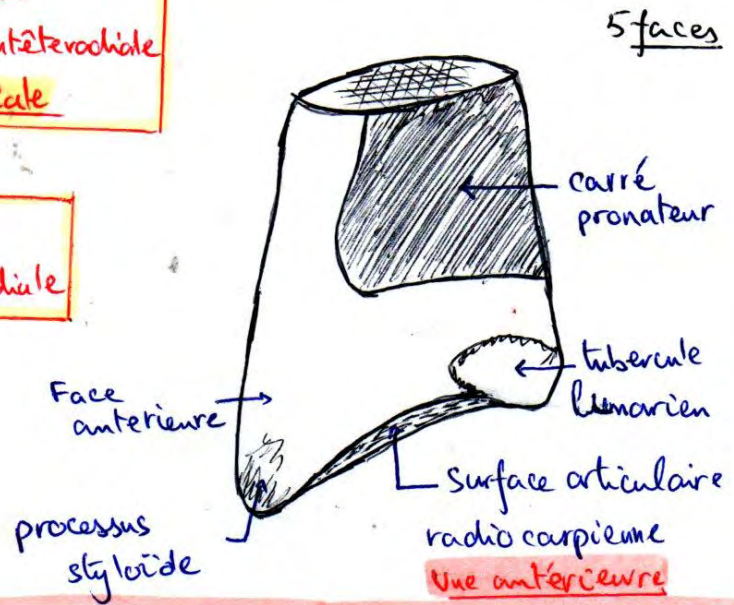 5 faces
ntêteradiale
cale
diale
carré
pronateur
tubercule
lunarien
Face
anterieure
Surface articulaire
radio carpienne
processus
styloïde
vue antérieure